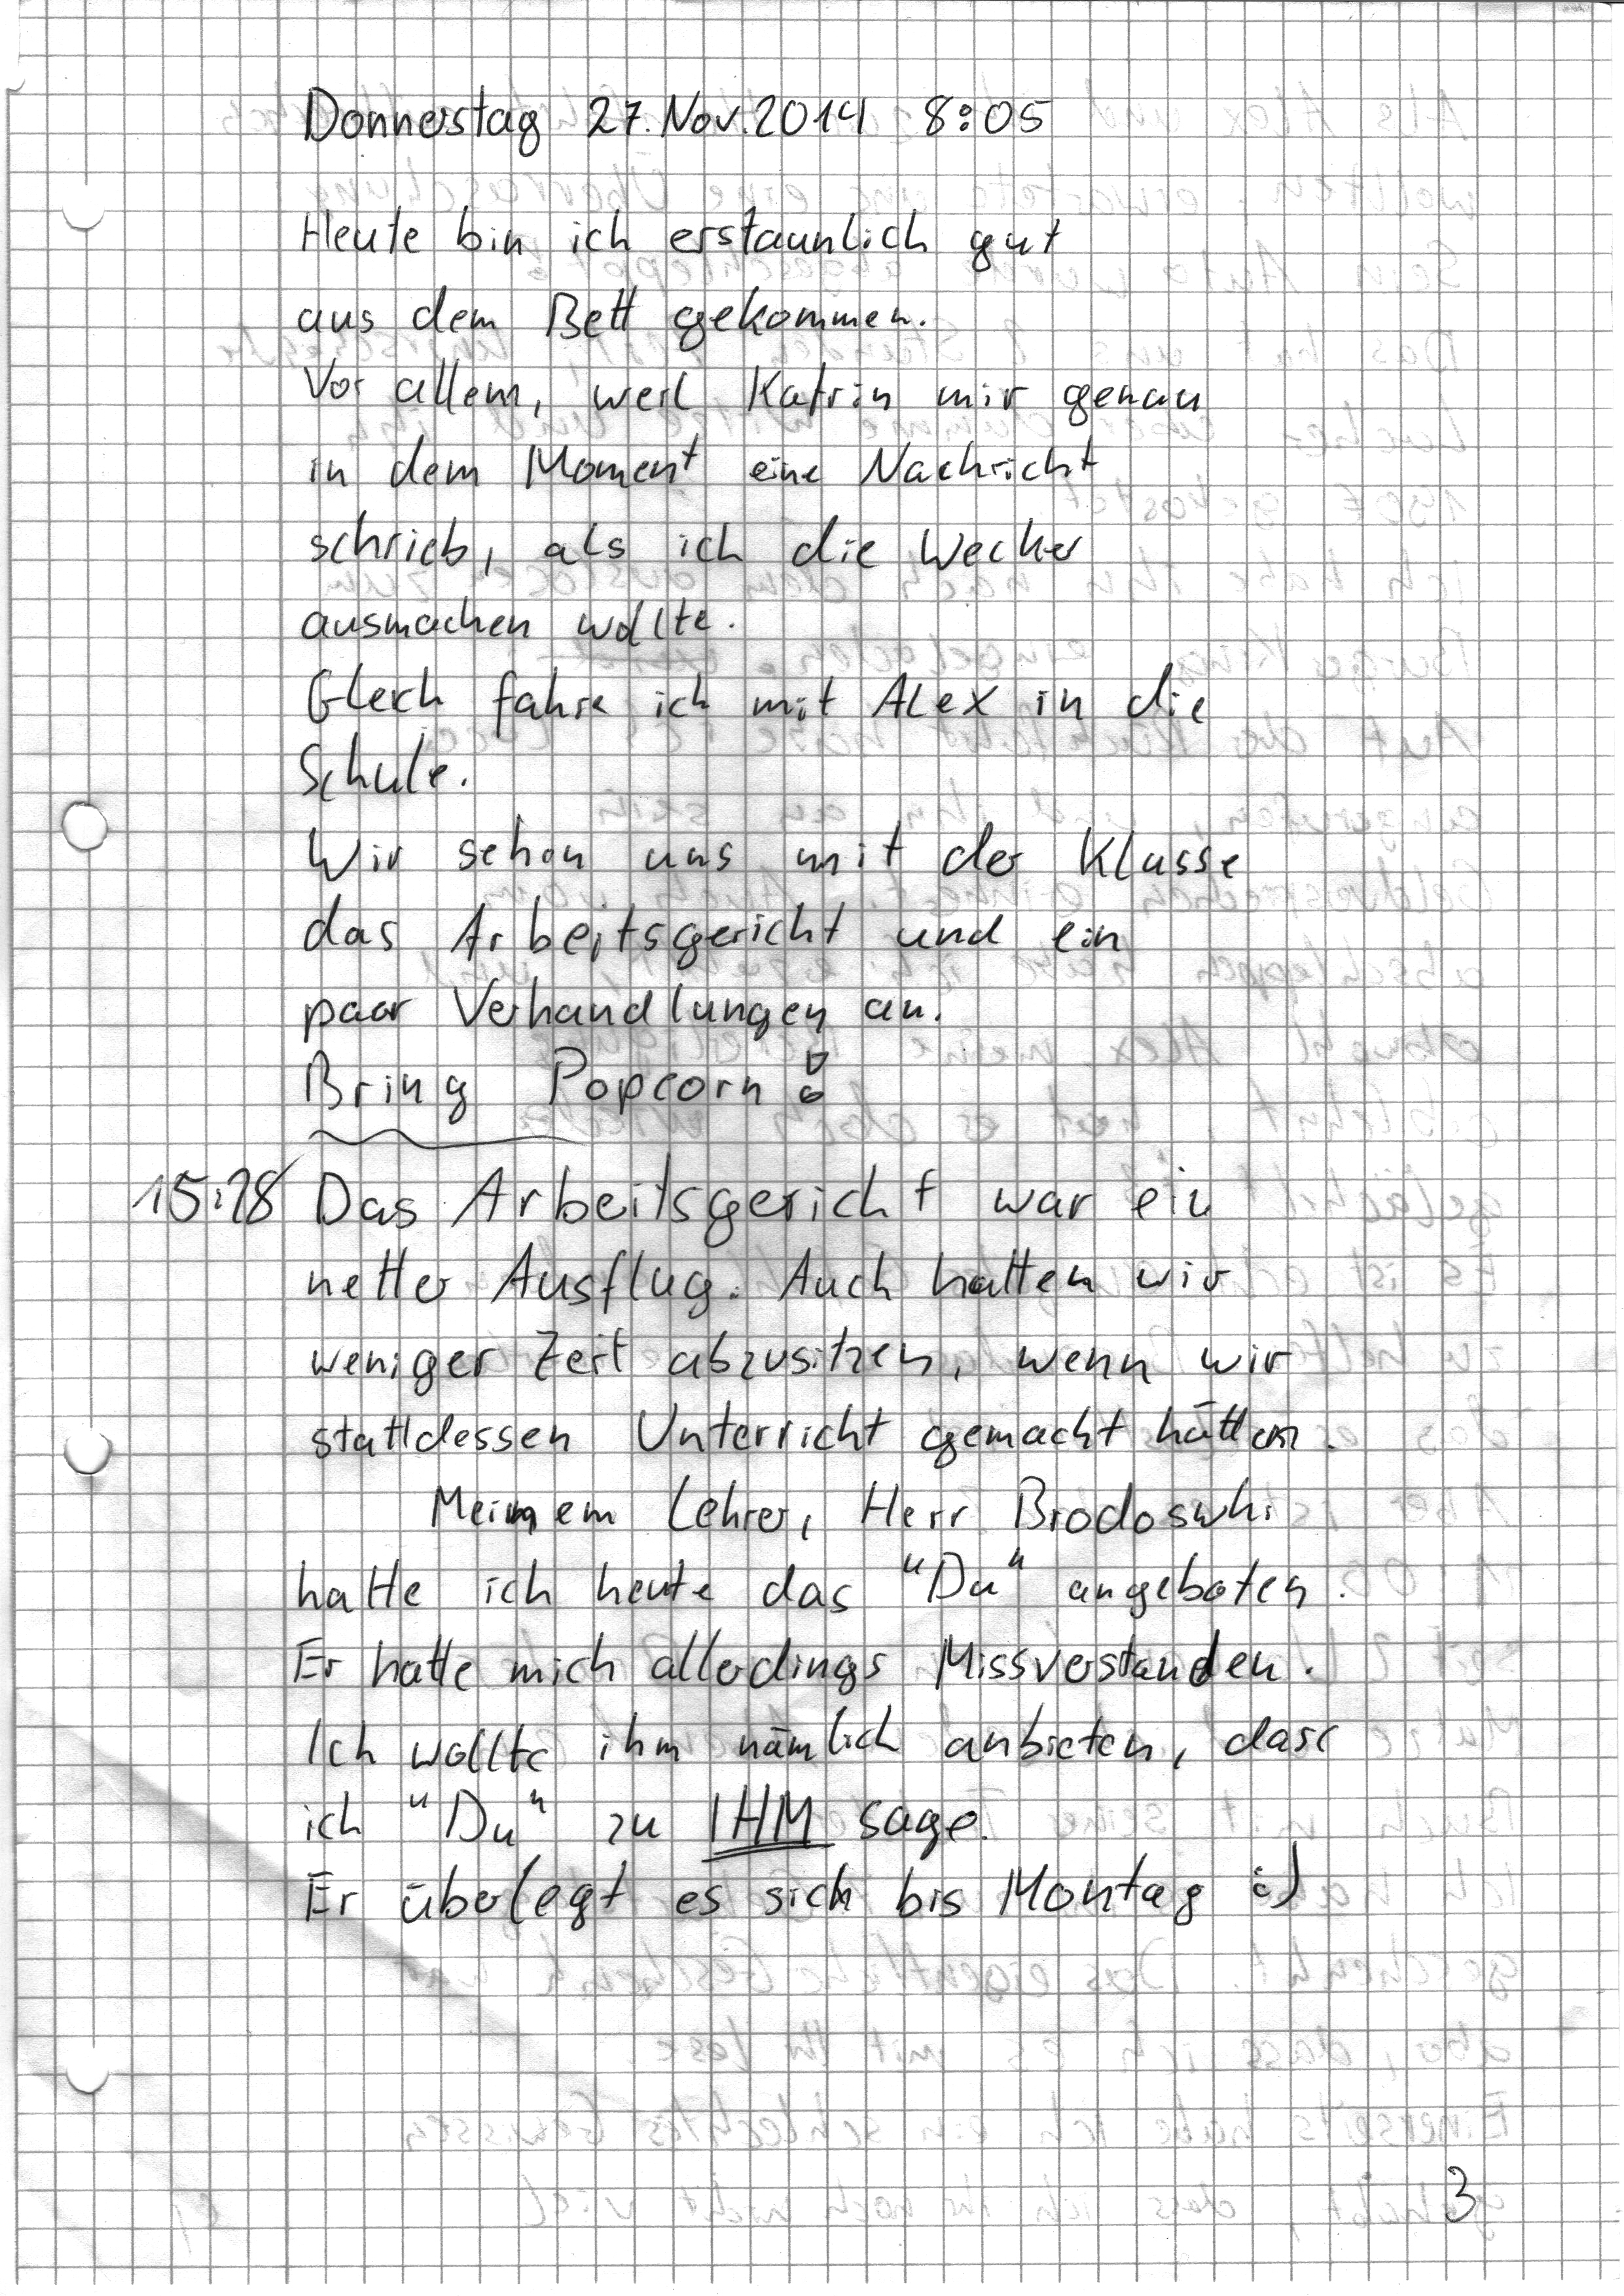 Donnerstag 27. Nov. 2014 8:05
Heute bin ich erstaunlich gut
aus dem Bett gekommen.
Vor allem, weil Katrin mir genau
in dem Moment eine Nachricht
schrieb, als ich die Wecker
ausmachen wollte.
Gleich fahre ich mit Alex in die
Schule.
Wir sehen uns mit der Klasse
das Arbeitsgericht und ein
paar Verhandlungen an.
Bring Popcorn!
15:28 Das Arbeitsgericht war ein
netter Ausflug. Auch hatten wir
weniger Zeit abzusitzen, wenn wir
stattdessen Unterricht gemacht hätten.
Meinem Lehrer, Herr Brodoswki
hatte ich heute das "Du" angeboten.
Er hatte mich allerdings Missverstanden.
Ich wollte ihm nämlich anbieten, dass
ich "Du" zu IHM sage.
Er überlegt es sich bis Montag :)
3